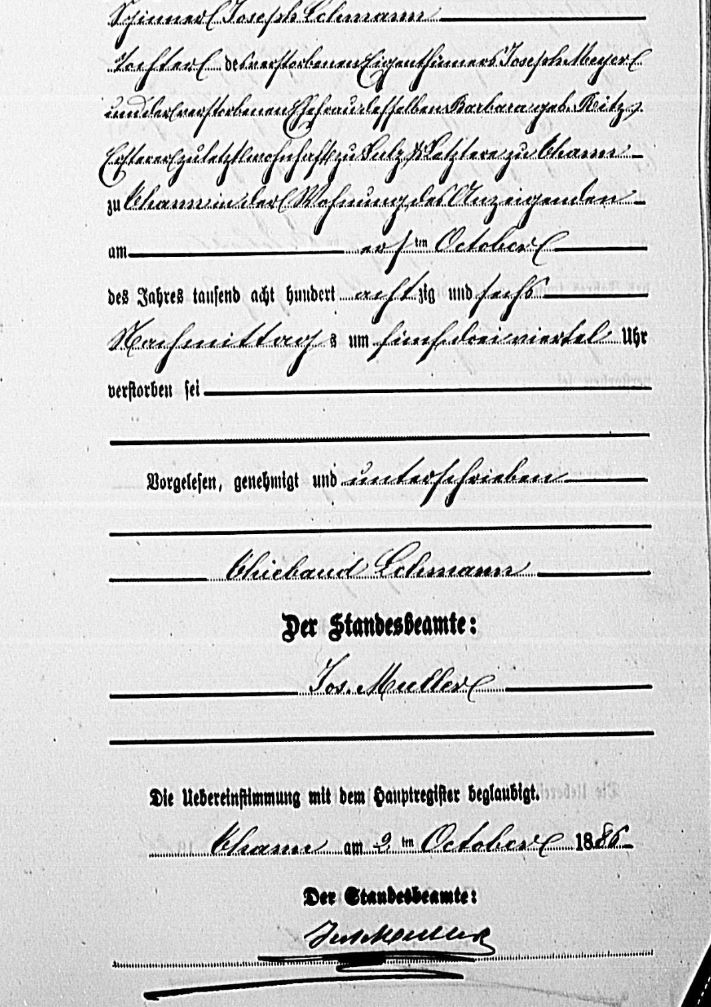 Spinner Joseph Lehmann
Tochter des verstorbenen Eigenthümers Joseph Meyer
und der verstorbenen Ehefrau desselben Barbara geb. Ritz,
Ersterer zuletzt wohnhaft zu Sulz & Letztere zu Thann
zu Thann in der Wohnung des Anzeigenden
am ersten October
des Jahres tausend acht hundert achtzig und sechs
Nachmittags um fünf dreiviertel Uhr
verstorben sei
Vorgelesen, genehmigt und unterschrieben
Thiebaud Lehmann
Der Standesbeamte:
Jos. Muller
Die Uebereinstimmung mit dem Hauptregister beglaubigt.
Thann am 2 ten October 1886
Der Standesbeamte:
Jos Muller